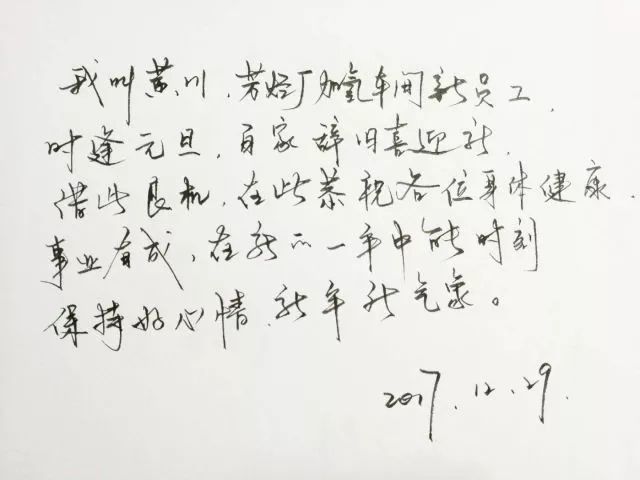 我叫黄川,芳烃厂加氢车间新员工,
时逢元旦,百家辞旧喜迎新,
借此良机,在此恭祝各位身体健康,
事业有成,在新的一年中能时刻
保持好心情,新年新气象。
2017.12.29.